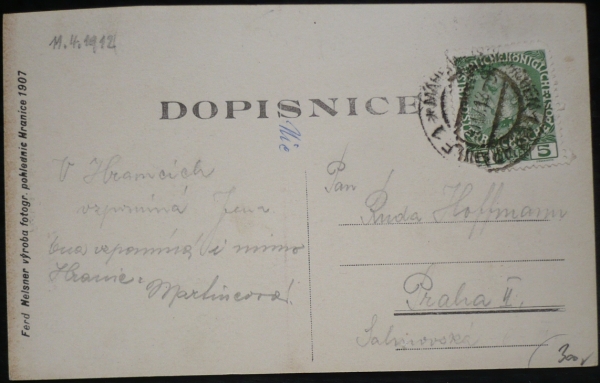 11.4.1912
DOPISNICE
Ferd Meisner výroba fotogr. pohlednic Hranice 1907
5
V Hranicích
vzpomíná Jena
vzpomíná i mimo
Hranic
Martincová
Pan
Ruda Hoffmann
Praha II.
Salmovská